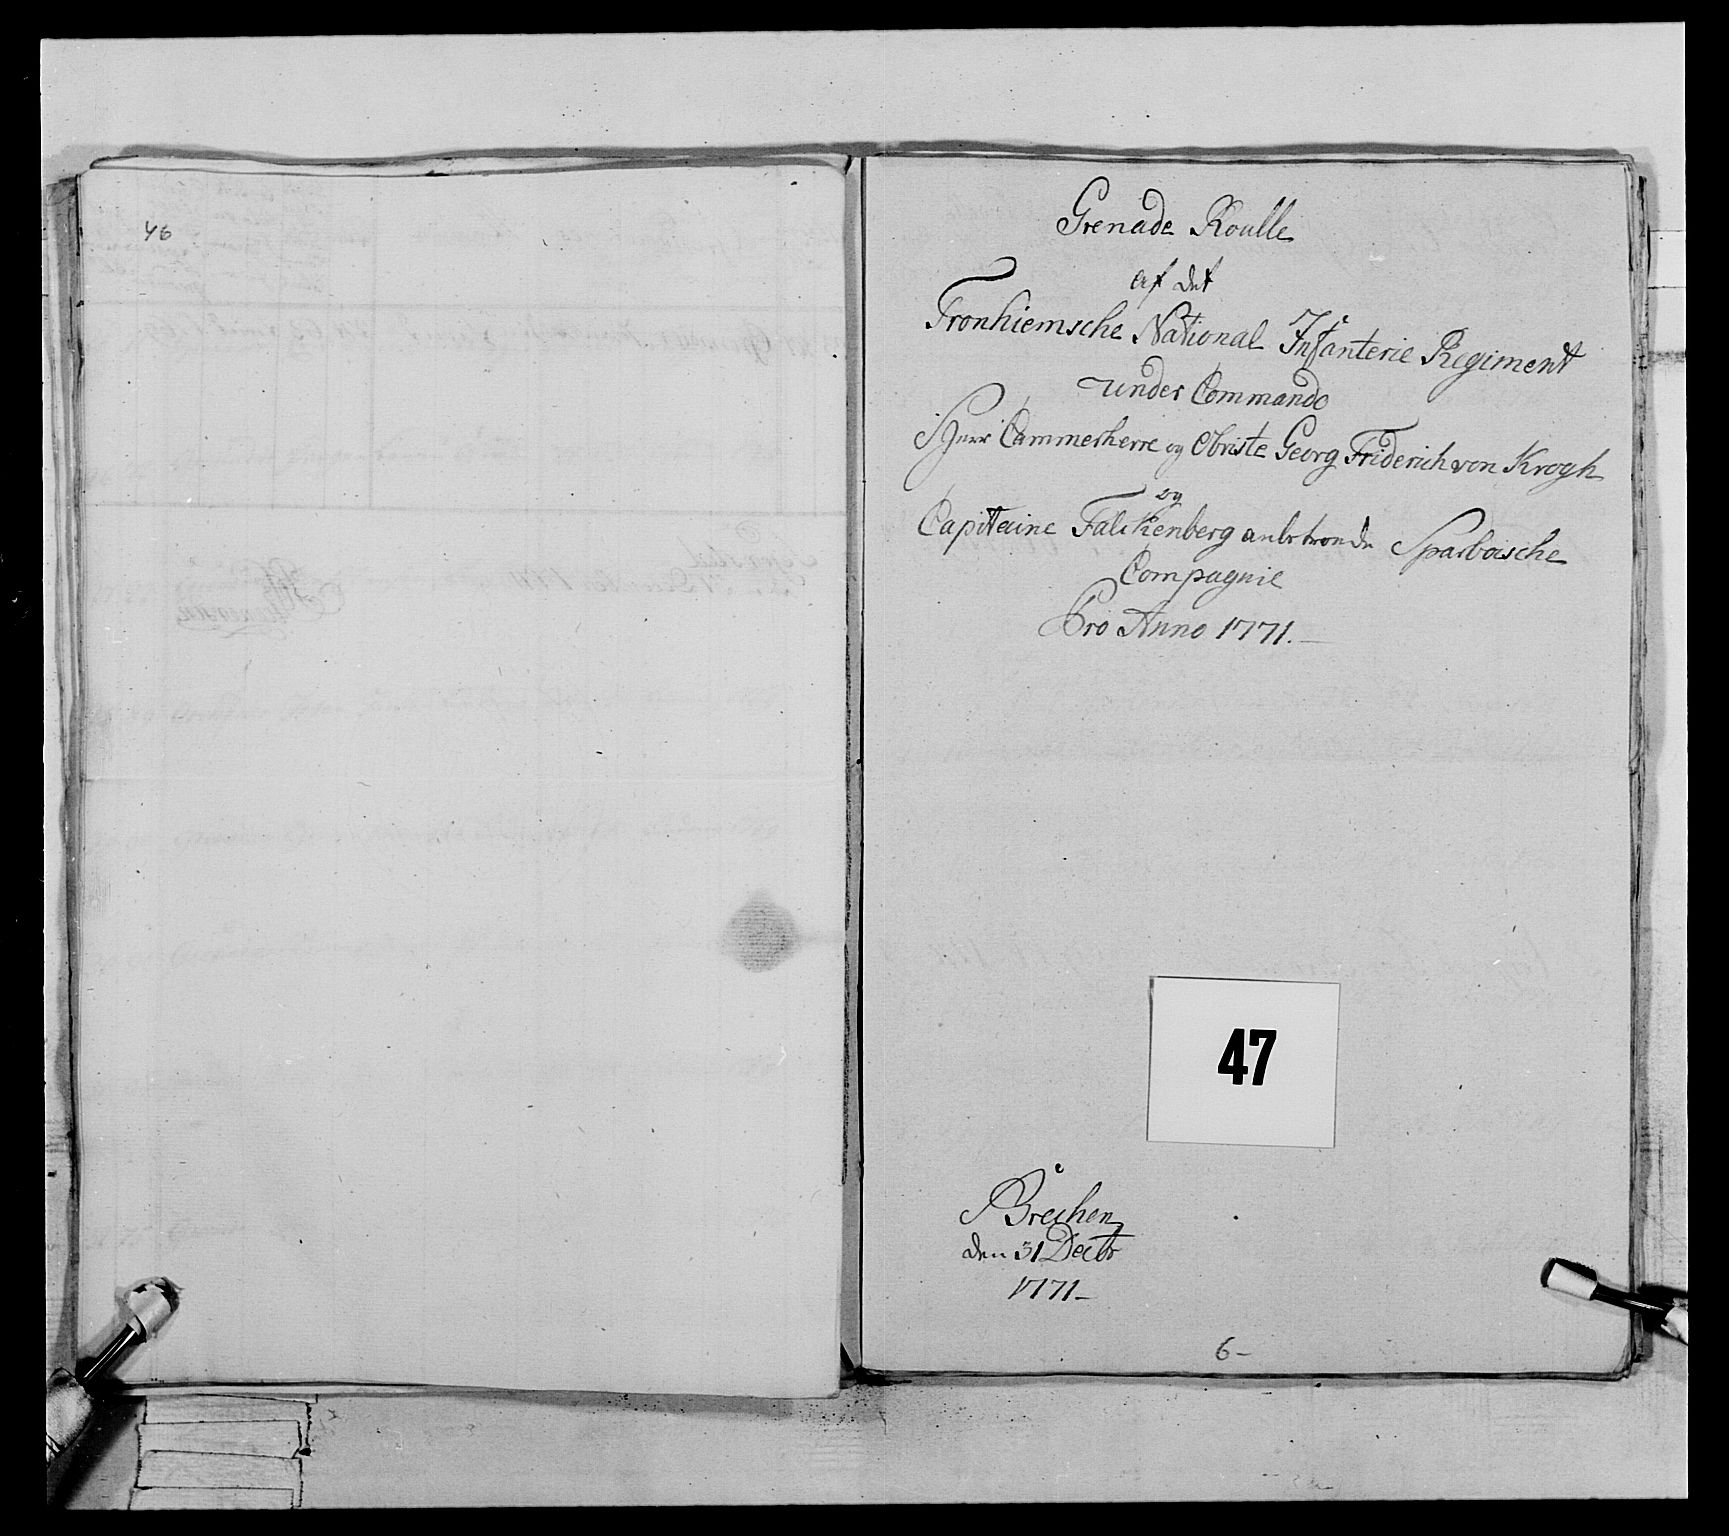 46
Grenade Roulle
af det
Tronhiemsche National Infanterie Regiment
under Commando
Herr Cammerherre og Obriste Georg Friderich von Krogh
og
Capitaine Falckenberg anbetroede Sparboische
Compagnie
Pro Anno 1771.
47
Brechen
den 31 Decbr
1771
6